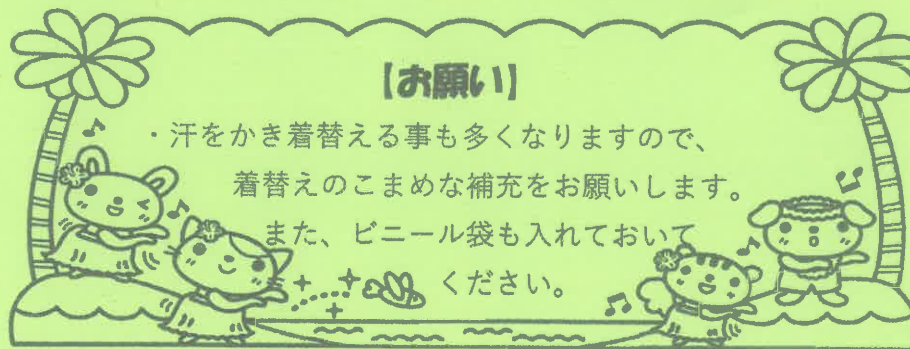 【お願い】
・汗をかき着替える事も多くなりますので、
着替えのこまめな補充をお願いします。
また、ビニール袋も入れておいて
ください。